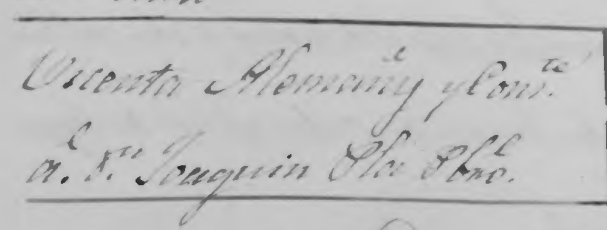 Vicenta Alemañy y Cons.te
a.l D.n Joaquin Pla Pbro.